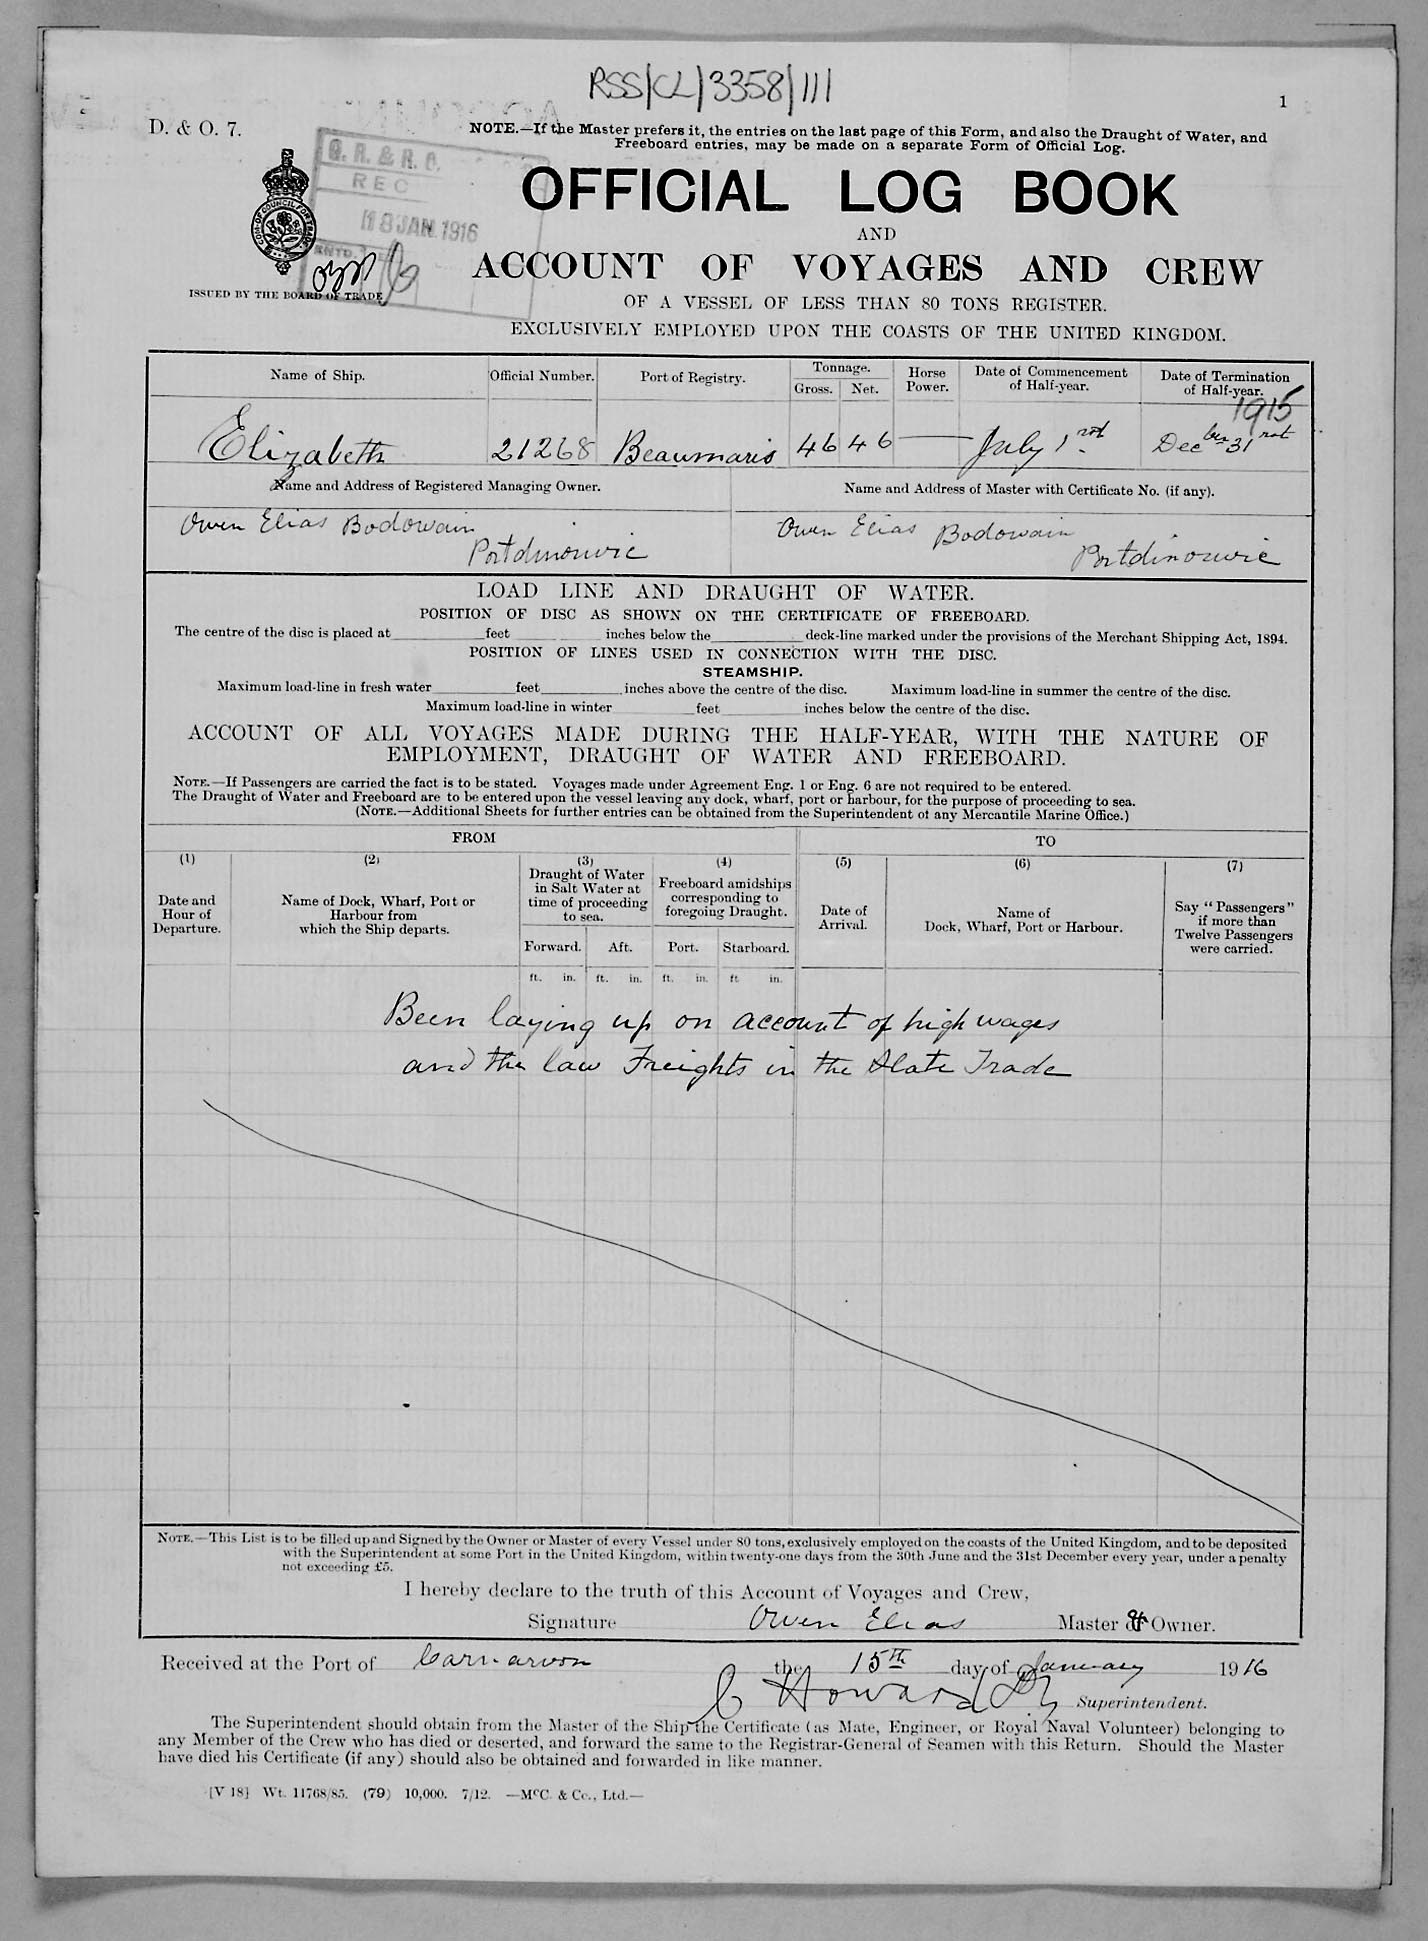 RSS/CL/3358/111
1
D. & O. 7.
NOTE.—If the Master prefers it, the entries on the last page of this Form, and also the Draught of Water, and
Freeboard entries, may be made on a separate Form of Official Log.
G. R. & R. O.
REC
18 JAN. 1916
OFFICIAL LOG BOOK
AND
ACCOUNT OF VOYAGES AND CREW
ISSUED BY THE BOARD OF TRADE
OF A VESSEL OF LESS THAN 80 TONS REGISTER.
EXCLUSIVELY EMPLOYED UPON THE COASTS OF THE UNITED KINGDOM.
Name of Ship. Official Number. Port of Registry. Tonnage. Gross. Net. Horse Power. Date of Commencement of Half-year. Date of Termination of Half-year.
1915
Elizabeth 21268 Beaumaris 46 46 — July 1st. Decber 31st
Name and Address of Registered Managing Owner. Name and Address of Master with Certificate No. (if any).
Owen Elias Bodowain Owen Elias Bodowain
Portdinorwic Portdinorwic
LOAD LINE AND DRAUGHT OF WATER.
POSITION OF DISC AS SHOWN ON THE CERTIFICATE OF FREEBOARD.
The centre of the disc is placed at feet inches below the deck-line marked under the provisions of the Merchant Shipping Act, 1894.
POSITION OF LINES USED IN CONNECTION WITH THE DISC.
STEAMSHIP.
Maximum load-line in fresh water feet inches above the centre of the disc. Maximum load-line in summer the centre of the disc.
Maximum load-line in winter feet inches below the centre of the disc.
ACCOUNT OF ALL VOYAGES MADE DURING THE HALF-YEAR, WITH THE NATURE OF
EMPLOYMENT, DRAUGHT OF WATER AND FREEBOARD.
NOTE.—If Passengers are carried the fact is to be stated. Voyages made under Agreement Eng. 1 or Eng. 6 are not required to be entered.
The Draught of Water and Freeboard are to be entered upon the vessel leaving any dock, wharf, port or harbour, for the purpose of proceeding to sea.
(NOTE.—Additional Sheets for further entries can be obtained from the Superintendent of any Mercantile Marine Office.)
FROM TO
(1) (2) (3) (4) (5) (6) (7)
Date and Hour of Departure.
Name of Dock, Wharf, Port or Harbour from which the Ship departs.
Draught of Water in Salt Water at time of proceeding to sea.
Freeboard amidships corresponding to foregoing Draught.
Date of Arrival.
Name of Dock, Wharf, Port or Harbour.
Say "Passengers" if more than Twelve Passengers were carried.
Forward. Aft. Port. Starboard.
ft. in. ft. in. ft. in. ft in.
Been laying up on account of high wages
and the law Freights in the Slate Trade
NOTE.—This List is to be filled up and Signed by the Owner or Master of every Vessel under 80 tons, exclusively employed on the coasts of the United Kingdom, and to be deposited
with the Superintendent at some Port in the United Kingdom, within twenty-one days from the 30th June and the 31st December every year, under a penalty
not exceeding £5.
I hereby declare to the truth of this Account of Voyages and Crew,
Signature Owen Elias Master & Owner.
Received at the Port of Carnarvon the 15th day of January 1916
C Howard Superintendent.
The Superintendent should obtain from the Master of the Ship the Certificate (as Mate, Engineer, or Royal Naval Volunteer) belonging to
any Member of the Crew who has died or deserted, and forward the same to the Registrar-General of Seamen with this Return. Should the Master
have died his Certificate (if any) should also be obtained and forwarded in like manner.
[V 18] Wt. 11768/85. (79) 10,000. 7/12. —McC. & Co., Ltd.—